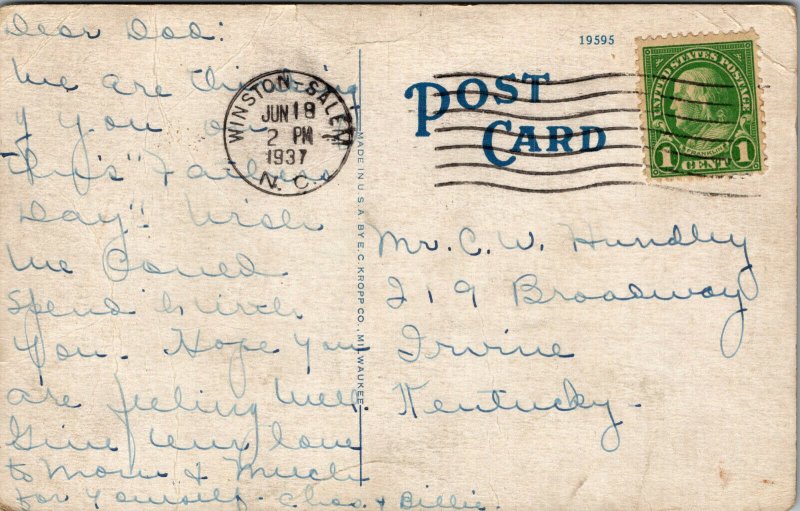 Dear Dad:
We are thinking
of you on
this "Fathers
Day". Wish
we could
spend it with
you. Hope you
are feeling well.
Give our love
to Mom & Much
for yourself. Chas. & Billie.
MADE IN U.S.A. BY E.C. KROPP CO., MILWAUKEE
19595
POST
CARD
WINSTON-SALEM
JUN 18
2 PM
1937
N.C.
UNITED STATES POSTAGE
FRANKLIN
1 CENT 1
Mr. C. W. Hundley
219 Broadway
Irvine
Kentucky.